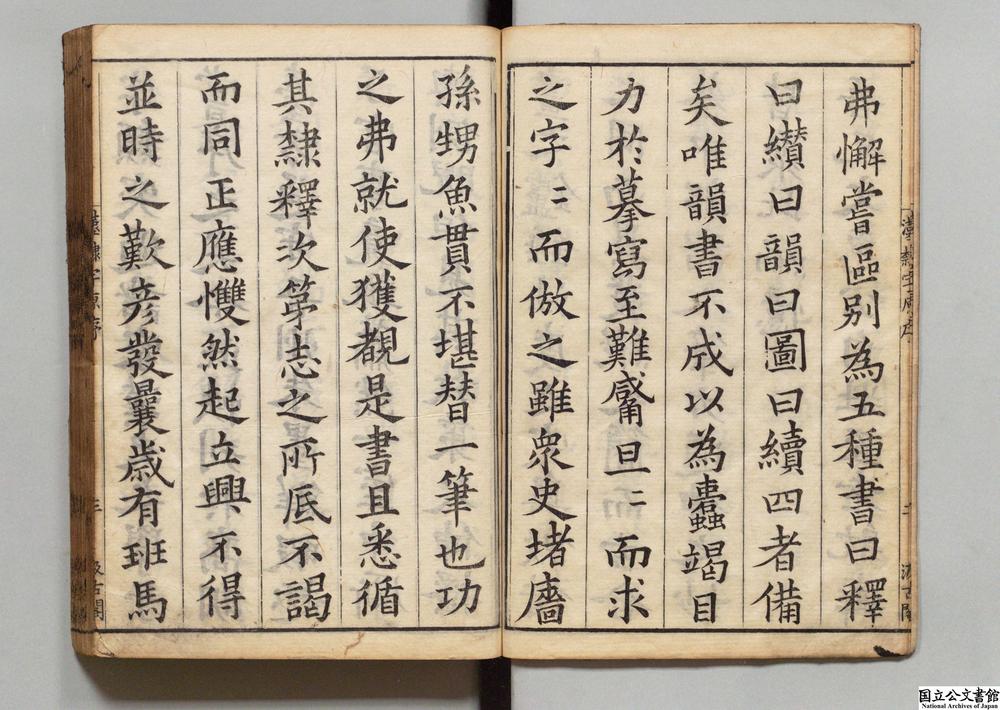 弗懈嘗區别為五種書曰釋
曰纘曰韻曰圖曰續四者備
矣唯韻書不成以為蠹竭目
力於摹寫至難旦〻而求
之字〻而倣之雖衆史堵廧
孫甥魚貫不堪替一筆也功
之弗就使獲覩是書且悉循
其隸釋次第志之所厎不謁
而同正應戄然起立興不得
並時之歎彦發曩歲有班馬
漢隸字原序
三
汲古閣
国立公文書館
National Archives of Japan